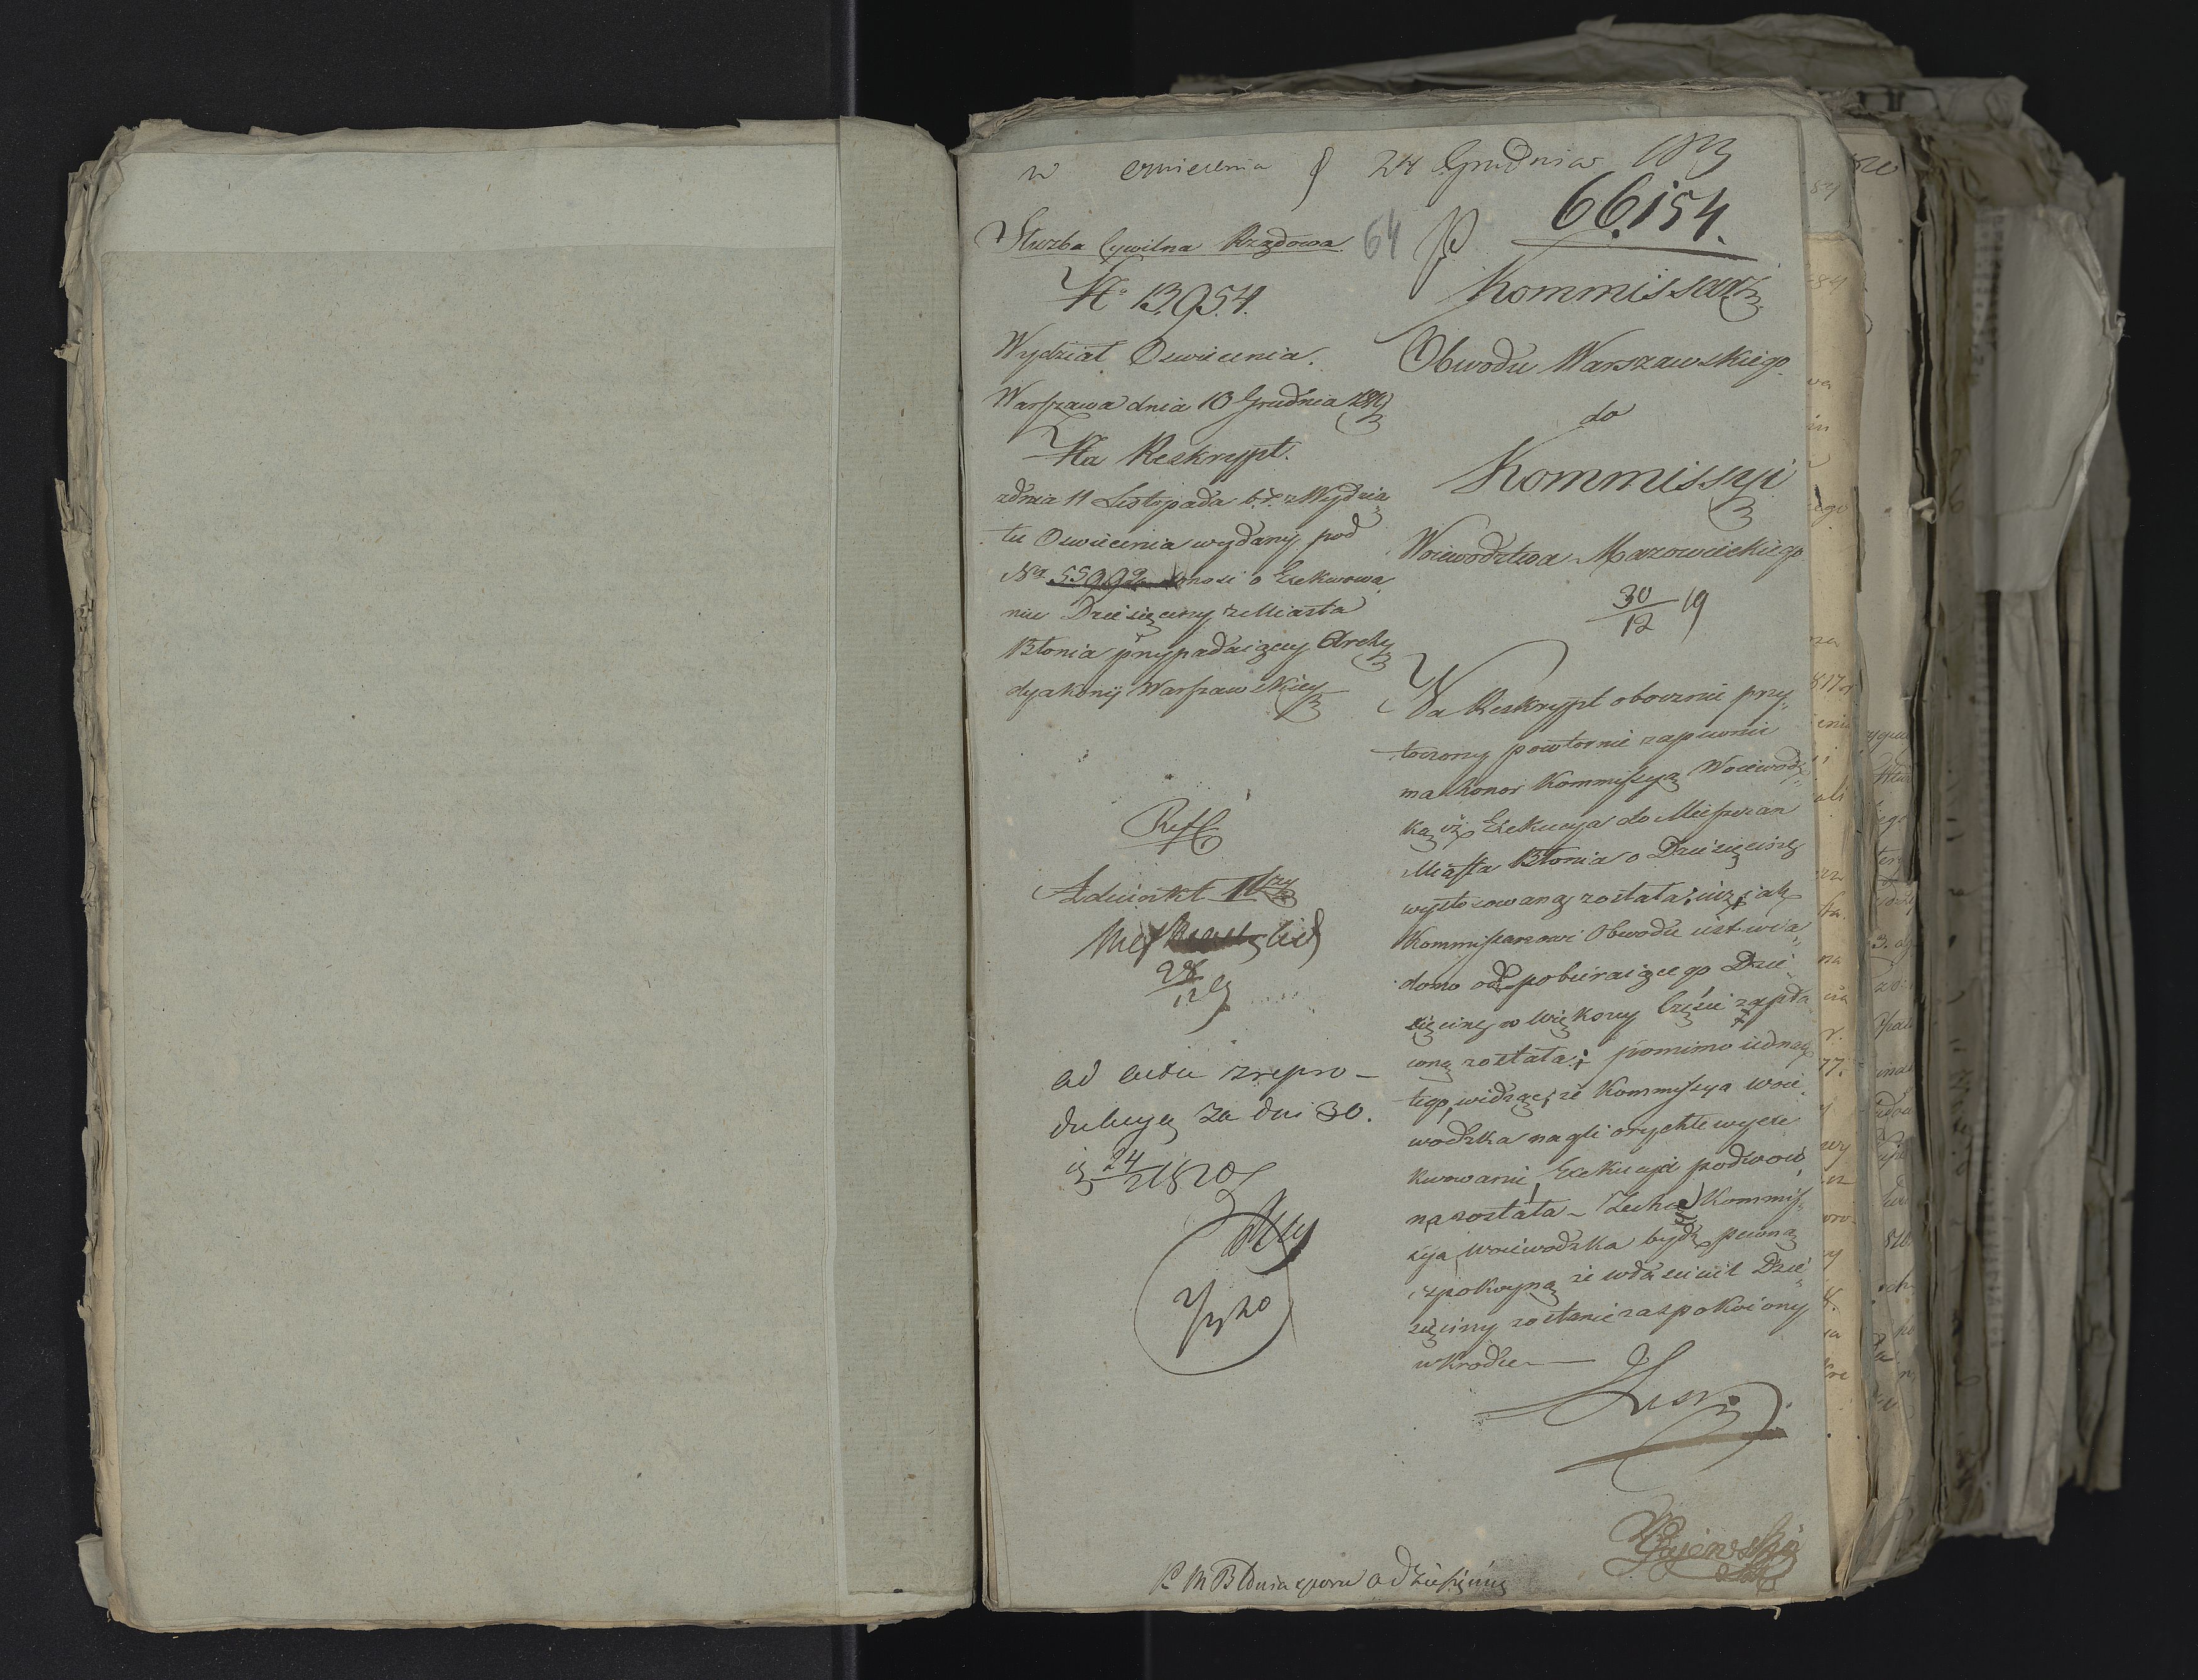 24 Grudnia 1819
66,154.
64
Służba Cywilna Rządowa
No 13,954.
Wydział Oswiecenia.
Warszawa dnia 10 Grudnia 1819
Na Reskrypt.
zdnia 11 Listopada b. r. z Wydzia
łu Oswiecenia wydany pod
Nr 55992 donosi o Exekwowa
niu Dziesięciny z Miasta
Błonia przypadaiącey Archy
dyakonij Warszawskiey
Adiunkt
28
12
ad acta zrepro-
dukuyą za dni 30.
24
1820
Kommissarz
Obwodu Warszawskiego
do
Kommissyi
Woiewodztwa Mazowieckiego
30
12 19
Na Reskrypt obocznie przy
toczony powtornie zapewnić
ma honor Kommissyą Woiewodz
ką iż Exekucya do Mieszczan
Miasta Błonia o Dziesięcinę
wystosowaną została, iuż iak
Kommissarzowi Obwodu iest wia
domo od pobieraiącego Dzie
sięcinę w większey Części zapła
coną została; pomimo iednak
tego, widząc, że Kommissya Woie
wodzka nagli o rychłe wyexe
kwowanie, Exekucya podwoio
ną została – Zechce Kommis
sya Woiewodzka bydź pewną
i spokoyną że właściciel Dzie
sięciny zostanie zaspokoiony
wkrotce –
Błonia sporu o dziesięcinę